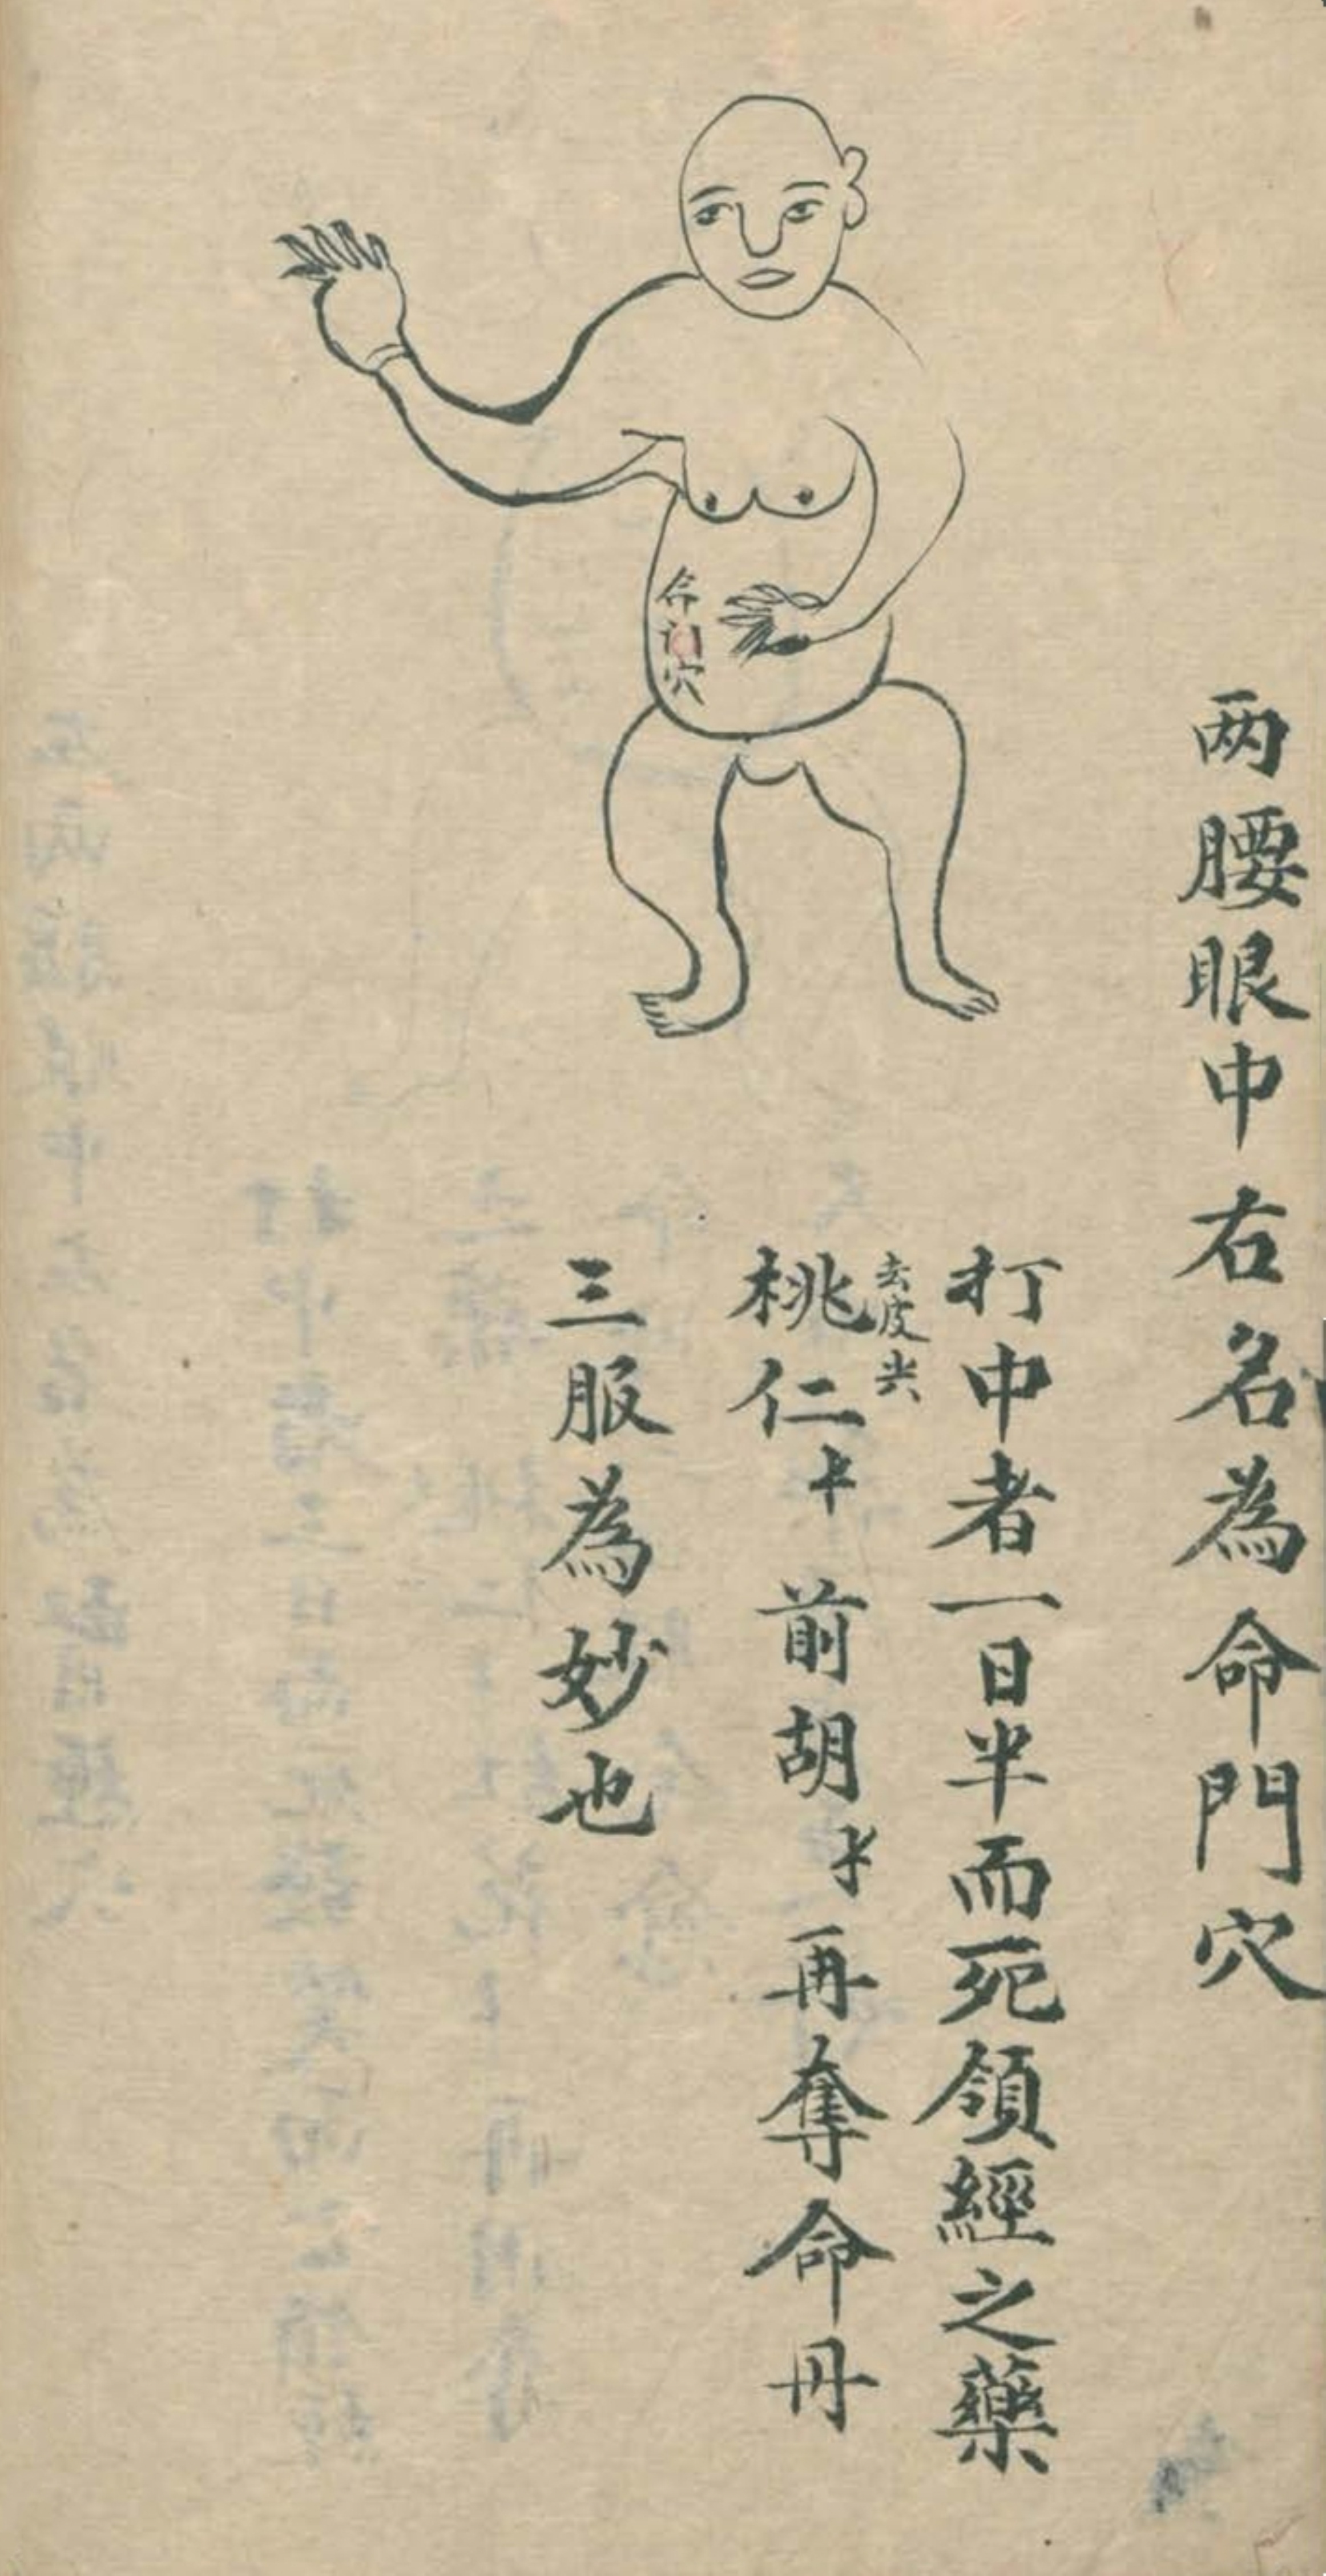 两腰眼中右名為命門穴
打中者一日半而死領經之藥
去皮尖
桃仁 前胡 再奪命丹
三服為妙也
命門穴